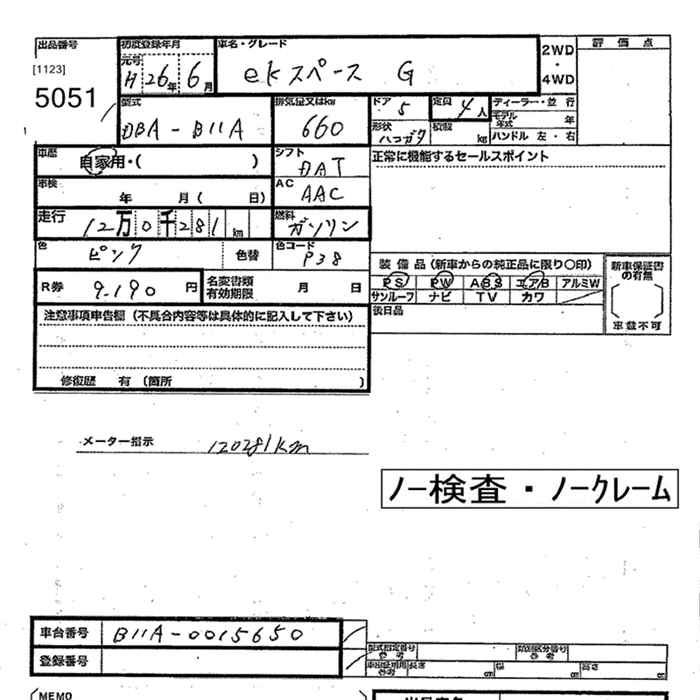 出品番号 初度登録年月 車名・グレード 2WD ・ 4WD 評価点
[1123] 元号 H 26年 6月 ekスペース G
5051
型式 排気量又はkw ドア 5 定員 4人 ディーラー・並行
DBA-B11A 660 形状 ハコガタ 積載 kg モデル年式 年
ハンドル 左・右
車歴 自家用・( ) シフト DAT 正常に機能するセールスポイント
車検 年 月( 日) AC AAC
走行 12万0千281km 燃料 ガソリン
色 ピンク 色替 色コード P38 装備品(新車からの純正品に限り○印) 新車保証書の有無
R券 9.190円 名変書類有効期限 月 日 PS PW ABS エアB アルミW
サンルーフ ナビ TV カワ 車載不可
注意事項申告欄(不具合内容等は具体的に記入して下さい) 後日品
修復歴 有(箇所 )
メーター指示 120281km
ノー検査・ノークレーム
車台番号 B11A-0015650
登録番号 型式指定番号 参考 類別区分番号 参考
車出証明用参考 長さ cm 幅 cm 高さ cm
MEMO